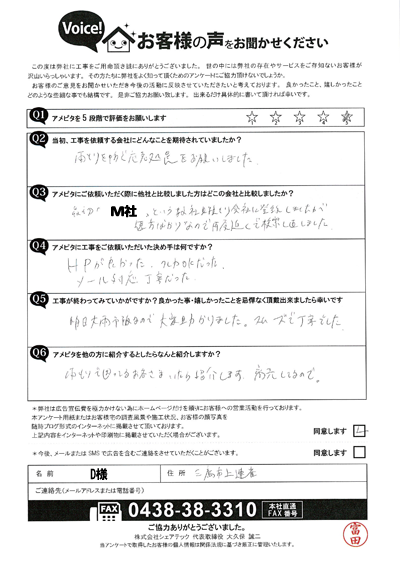 Voice!
お客様の声をお聞かせください
この度は弊社に工事をご用命頂き誠にありがとうございました。世の中には弊社の存在やサービスをご存知ないお客様が
沢山いらっしゃいます。その方たちに弊社をよく知って頂くためのアンケートにご協力頂けないでしょうか。
お客様のご意見をお聞かせいただき今後の活動に反映させていただきたいと考えております。良かったこと、嬉しかったこと
どのような些細な事でも結構です。是非ご協力お願い致します。出来るだけ具体的に書いて頂ければ幸いです。
Q1 アメピタを5段階で評価をお願いします
Q2 当初、工事を依頼する会社にどんなことを期待されていましたか?
雨もりを防ぐ応急処置をお願いしました。
Q3 アメピタにご依頼いただく際に他社と比較しました方はどこの会社と比較しましたか?
M社
Q4 アメピタに工事をご依頼いただいた決め手は何ですか?
HPが良かった。
メール対応 丁寧だった。
Q5 工事が終わってみていかがですか?良かった事・嬉しかったことを忌憚なく頂戴出来ましたら幸いです
明日大雨予報なので大変助かりました。スムーズで丁寧でした。
Q6 アメピタを他の方に紹介するとしたらなんと紹介しますか?
*弊社は広告宣伝費を極力かけない為にホームページだけを頼りにお客様への営業活動を行っております。
本アンケート用紙またはお客様宅の調査風景や施工状況、お客様の顔写真を
随時ブログ形式のインターネットに掲載させて頂いております。
上記内容をインターネットや印刷物に掲載させていただく場合がございます。
同意します
*今後、メールまたはSMSで広告を含むご連絡をさせていただくことがございます。
同意します
名前 D様 住所 三鷹市上連雀
ご連絡先(メールアドレスまたは電話番号)
FAX 0438-38-3310 本社直通 FAX番号
ご協力ありがとうございました。
株式会社シェアテック 代表取締役 大久保 誠二
当アンケートで取得したお客様の個人情報は関係法令に基づき厳正に管理いたします。
富田